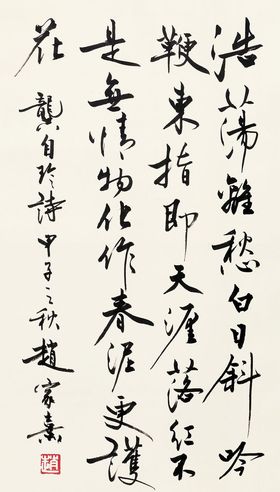 浩蕩離愁白日斜吟
鞭東指即天涯落紅不
是無情物化作春泥更護
花
龔自珍詩甲子之秋趙家熹
趙